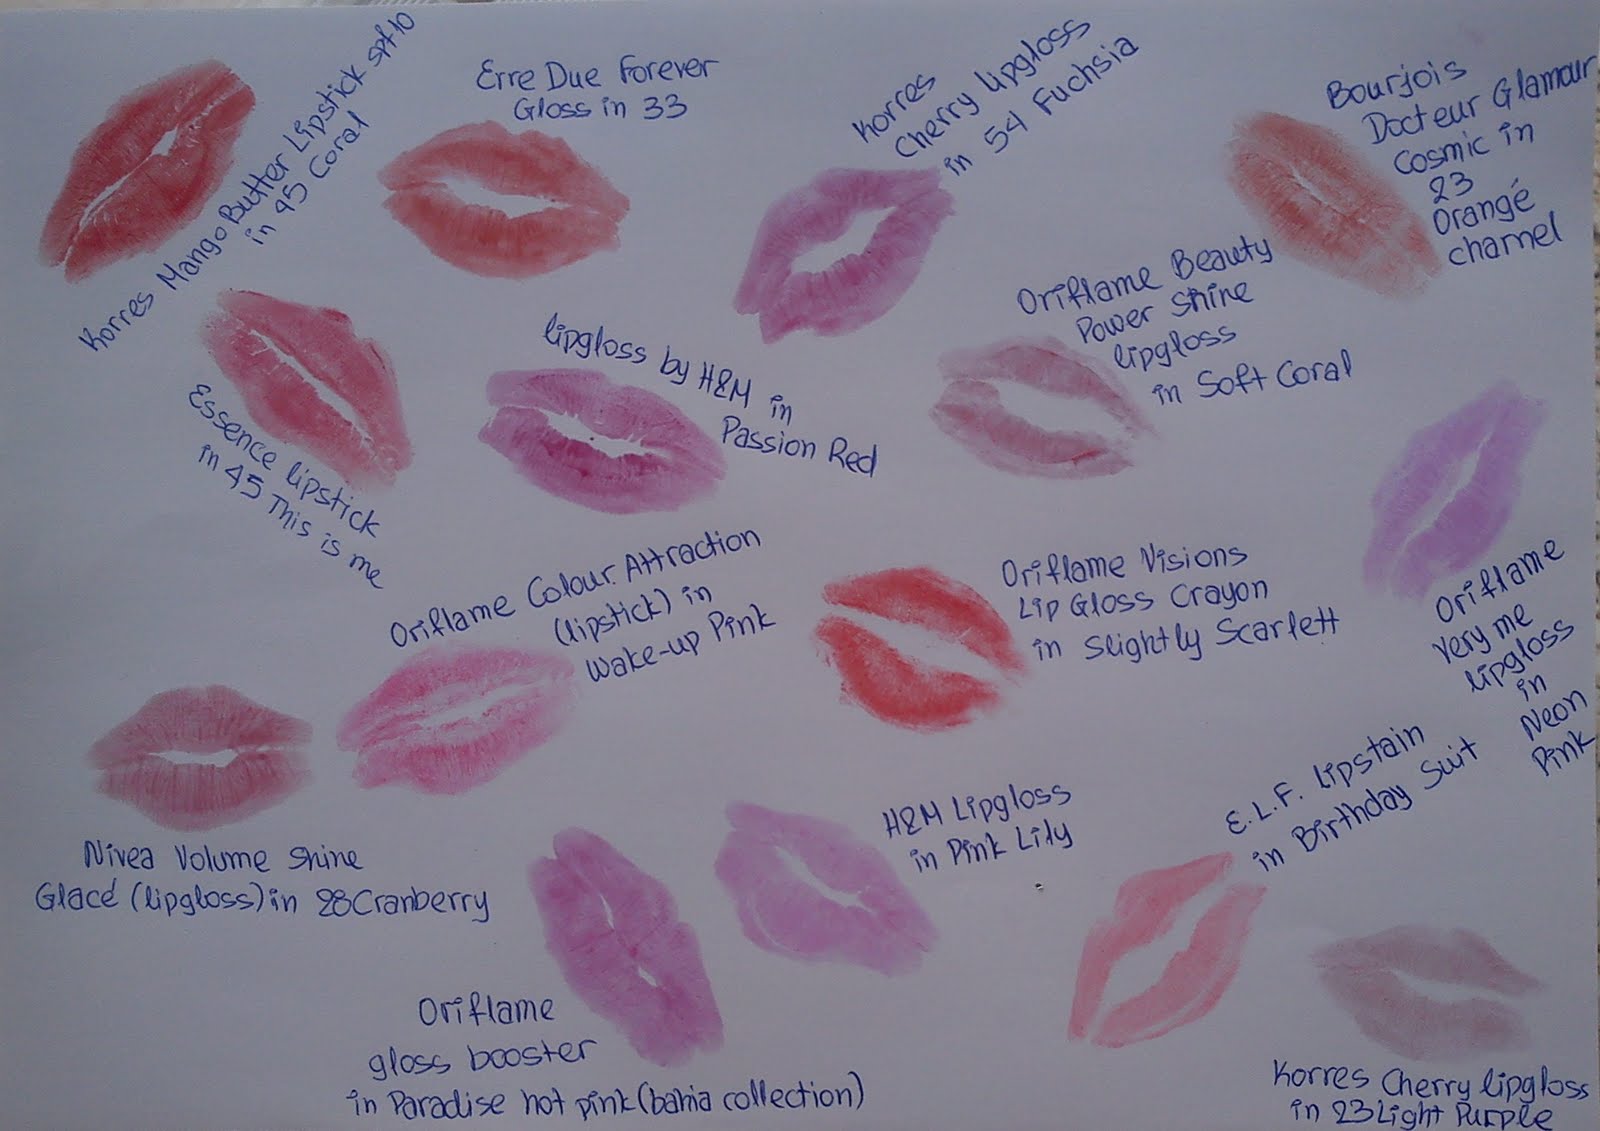 Korres Mango Butter Lipstick spf10
in 45 Coral
Erre Due Forever
Gloss in 33
Korres
Cherry lipgloss
in 54 Fuchsia
Bourjois
Docteur Glamour
Cosmic in
23
Orangé
charnel
Essence lipstick
in 45 This is me
lipgloss by H&M in
Passion Red
Oriflame Beauty
Power shine
lipgloss
in Soft Coral
Oriflame Colour Attraction
(lipstick) in
wake-up Pink
Oriflame Visions
Lip Gloss Crayon
in Slightly Scarlett
Oriflame
very me
lipgloss
in
Neon
Pink
Nivea Volume shine
Glacé (lipgloss) in 28 Cranberry
H&M Lipgloss
in Pink Lily
E.L.F. lipstain
in Birthday Suit
Oriflame
gloss booster
in Paradise hot pink (bahia collection)
Korres Cherry lipgloss
in 23 Light Purple